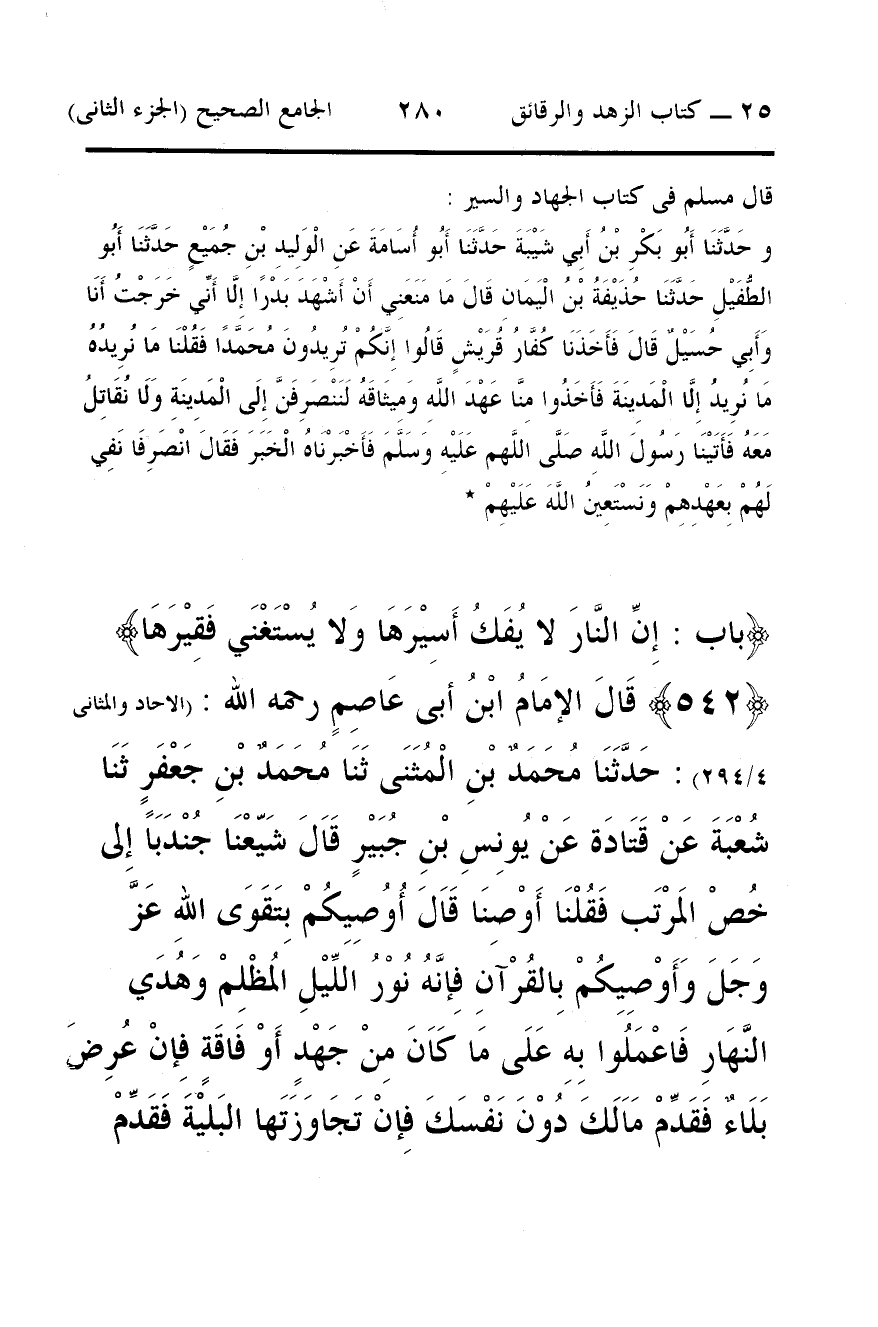 ٢٥ ــ كتاب الزهد والرقائق ٢٨٠ الجامع الصحيح (الجزء الثانى)
قال مسلم فى كتاب الجهاد والسير :
و حَدَّثَنَا أَبُو بَكْرِ بْنُ أَبِي شَيْبَةَ حَدَّثَنَا أَبُو أُسَامَةَ عَنِ الْوَلِيدِ بْنِ جُمَيْعٍ حَدَّثَنَا أَبُو
الطُّفَيْلِ حَدَّثَنَا حُذَيْفَةُ بْنُ الْيَمَانِ قَالَ مَا مَنَعَنِي أَنْ أَشْهَدَ بَدْرًا إِلَّا أَنِّي خَرَجْتُ أَنَا
وَأَبِي حُسَيْلٌ قَالَ فَأَخَذَنَا كُفَّارُ قُرَيْشٍ قَالُوا إِنَّكُمْ تُرِيدُونَ مُحَمَّدًا فَقُلْنَا مَا نُرِيدُهُ
مَا نُرِيدُ إِلَّا الْمَدِينَةَ فَأَخَذُوا مِنَّا عَهْدَ اللَّهِ وَمِيثَاقَهُ لَنَنْصَرِفَنَّ إِلَى الْمَدِينَةِ وَلَا نُقَاتِلُ
مَعَهُ فَأَتَيْنَا رَسُولَ اللَّهِ صَلَّى اللَّهم عَلَيْهِ وَسَلَّمَ فَأَخْبَرْنَاهُ الْخَبَرَ فَقَالَ انْصَرِفَا نَفِي
لَهُمْ بِعَهْدِهِمْ وَنَسْتَعِينُ اللَّهَ عَلَيْهِمْ *
﴿باب : إِنَّ النَّارَ لا يُفَكُ أَسِيْرَهَا وَلا يُسْتَغْنَي فَقِيْرَهَا﴾
﴿٥٤٢﴾ قَالَ الإِمَامُ ابْنُ أَبى عَاصِمٍ رحمه الله : (الاحاد والمثانى
٢٩٤/٤) : حَدَّثَنَا مُحَمَدٌ بْنِ الْمُثَنَى ثَنَا مُحَمَدٌ بْنِ جَعْفَرٍ ثَنَا
شُعْبَةَ عَنْ قَتَادَة عَنْ يُونِسِ بْنِ جُبَيْرٍ قَالَ شَيِّعْنَا جُنْدَبَاً إِلى
خُصْ المَرْتَبِ فَقُلْنَا أَوْصِنَا قَالَ أُوُصِيكُمْ بِتَقَوَى اللهِ عَزَّ
وَجَلَ وَأَوْصِيكُمْ بِالقُرْآنِ فِإنَّهُ نُوْرُ اللِّيْلِ المُظْلِمْ وَهُدَي
النَّهَارِ فَاعْمَلُوا بِهِ عَلَى مَا كَانَ مِنْ جَهْدٍ أَوْ فَاقَةٍ فِإنْ عُرِضَ
بَلَاءٌ فَقَدِّمْ مَالَكَ دُوْنَ نَفْسَكَ فِإنْ تَجَاوَزَتَها البَلِيْةَ فَقَدِّمْ